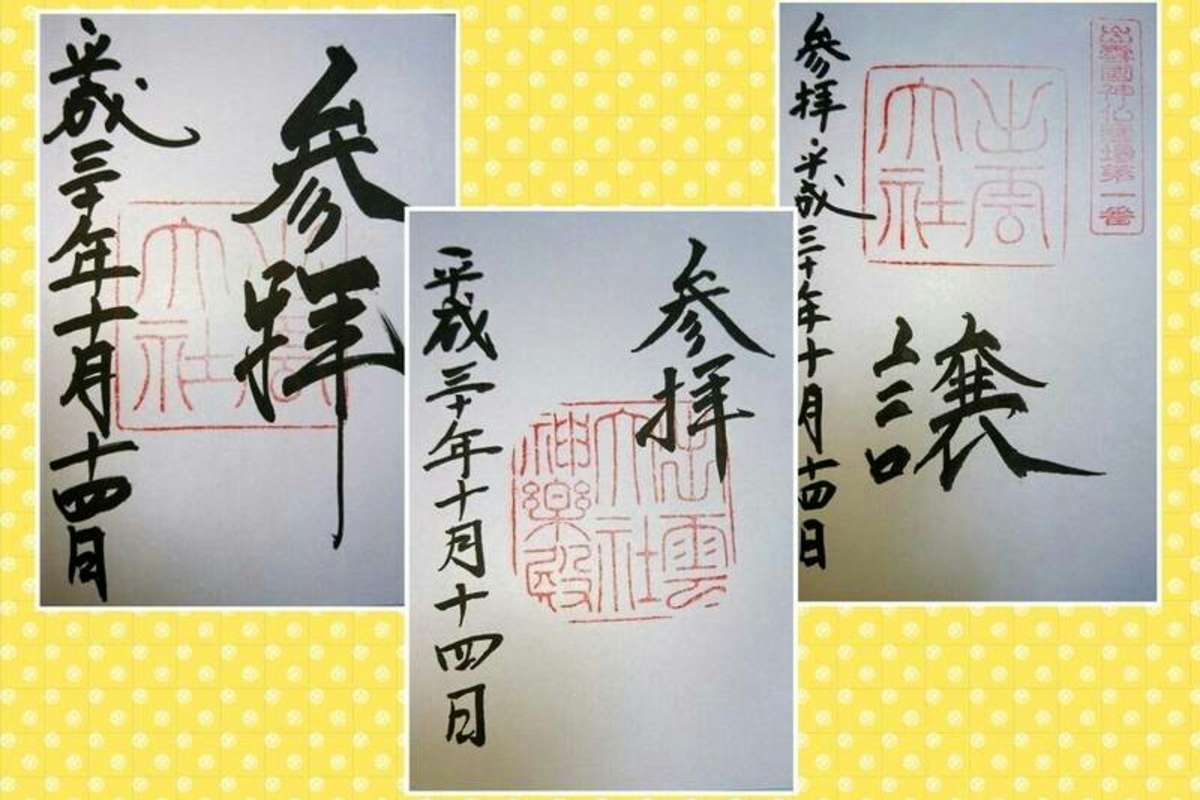 参拝
平成三十年十月十四日
出雲
大社
参拝
平成三十年十月十四日
出雲
大社
神楽殿
出雲國神仏霊場第一番
出雲
大社
譲
参拝 平成三十年十月十四日